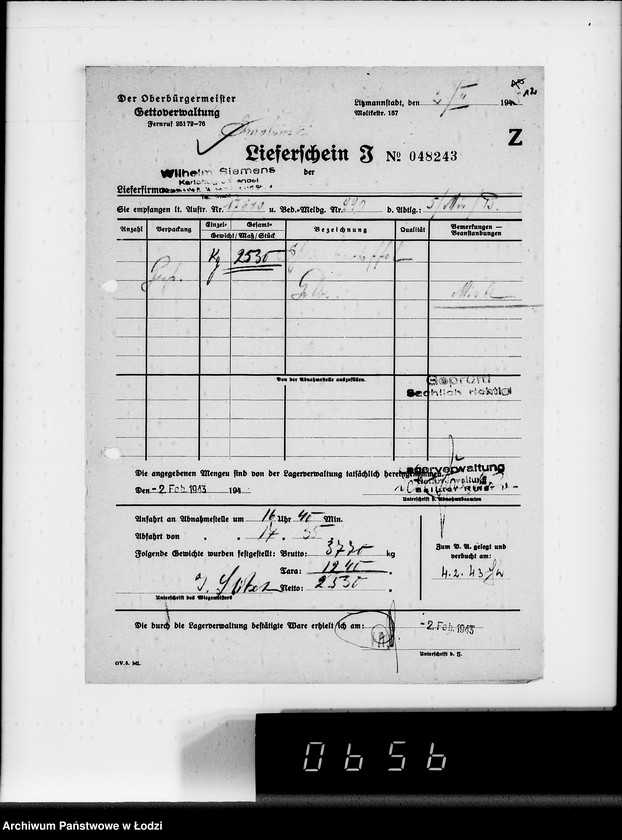 Der Oberbürgermeister
Gettoverwaltung
Fernruf 25172-76
Litzmannstadt, den 2/II 194
Moltkestr. 157
Z
Lieferschein J № 048243
der
Wilhelm Siemens
Lieferfirma
Sie empfangen lt. Auftr. Nr. u. Bed.-Meldg. Nr. d. Abtlg.:
Anzahl Verpackung Einzel- Gesamt- Gewicht/Maß/Stück Bezeichnung Qualität Bemerkungen — Beanstandungen
Kg 2530
Miete
Von der Abnahmestelle auszufüllen.
Geprüft
Sachlich richtig
Die angegebenen Mengen sind von der Lagerverwaltung tatsächlich hereingenommen.
Lagerverwaltung
Den -2. Feb. 1943 194
Unterschrift d. Abnahmebeamten
Anfahrt an Abnahmestelle um 16 Uhr 40 Min.
Abfahrt von „ „ 17 „ 55 „
Folgende Gewichte wurden festgestellt: Brutto: 3770 kg
Tara: 1240 „
Netto: 2530 „
Unterschrift des Wiegemeisters
Zum B. A. gelegt und
verbucht am:
4.2.43
Die durch die Lagerverwaltung bestätigte Ware erhielt ich am:
-2. Feb. 1943
Unterschrift d. F.
GV. 5. ML.
0656
Archiwum Państwowe w Łodzi